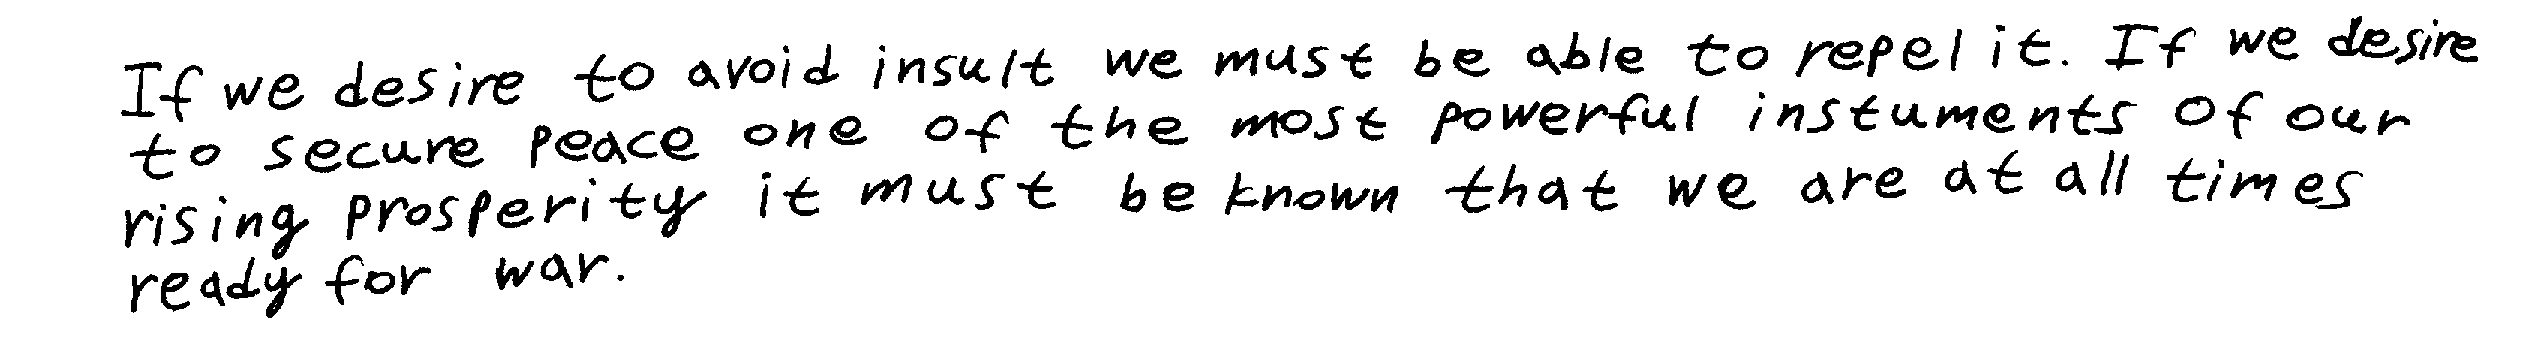 If we desire to avoid insult we must be able to repel it. If we desire
to secure peace one of the most powerful instuments of our
rising prosperity it must be known that we are at all times
ready for war.